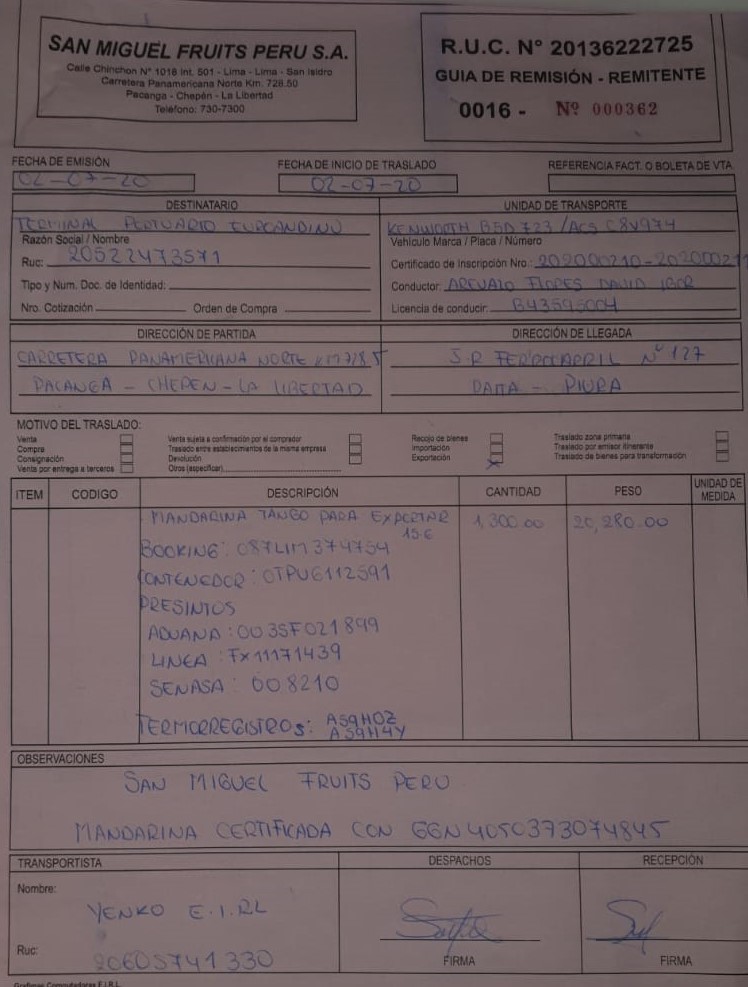 SAN MIGUEL FRUITS PERU S.A.
Calle Chinchon N° 1018 Int. 501 - Lima - Lima - San Isidro
Carretera Panamericana Norte Km. 728.50
Pacanga - Chepén - La Libertad
Teléfono: 730-7300
R.U.C. N° 20136222725
GUIA DE REMISIÓN - REMITENTE
0016 - Nº 000362
FECHA DE EMISIÓN
02-07-20
FECHA DE INICIO DE TRASLADO
02-07-20
REFERENCIA FACT. O BOLETA DE VTA.
DESTINATARIO
TERMINAL PORTUARIO EUROANDINO
Razón Social / Nombre
Ruc: 20522473571
Tipo y Num. Doc. de Identidad:
Nro. Cotización Orden de Compra
UNIDAD DE TRANSPORTE
KENWORTH 723 / C8V974
Vehículo Marca / Placa / Número
Certificado de Inscripción Nro.:
Conductor: AREVALO FLORES DAVID
Licencia de conducir: B43595004
DIRECCIÓN DE PARTIDA
CARRETERA PANAMERICANA NORTE
PACANGA - CHEPEN - LA LIBERTAD
DIRECCIÓN DE LLEGADA
J.R FERROCARRIL Nº 127
PAITA - PIURA
MOTIVO DEL TRASLADO:
Venta
Compra
Consignación
Venta por entrega a terceros
Venta sujeta a confirmación por el comprador
Traslado entre establecimientos de la misma empresa
Devolución
Otros (especificar)
Recojo de bienes
Importación
Exportación X
Traslado zona primaria
Traslado por emisor itinerante
Traslado de bienes para transformación
ITEM CODIGO DESCRIPCIÓN CANTIDAD PESO UNIDAD DE MEDIDA
MANDARINA TANGO PARA EXPORTAR 1,300.00 20,280.00
BOOKING: 087LIM374754
CONTENEDOR: OTPU6112591
PRESINTOS
ADUANA: 0035F021899
LINEA: FX11171439
SENASA: 008210
TERMORREGISTROS: A59H0Z
A59H4Y
OBSERVACIONES
SAN MIGUEL FRUITS PERU
MANDARINA CERTIFICADA CON GGN 4050373074845
TRANSPORTISTA
Nombre:
YENKO E.I.RL
Ruc:
20605741330
DESPACHOS
FIRMA
RECEPCIÓN
FIRMA